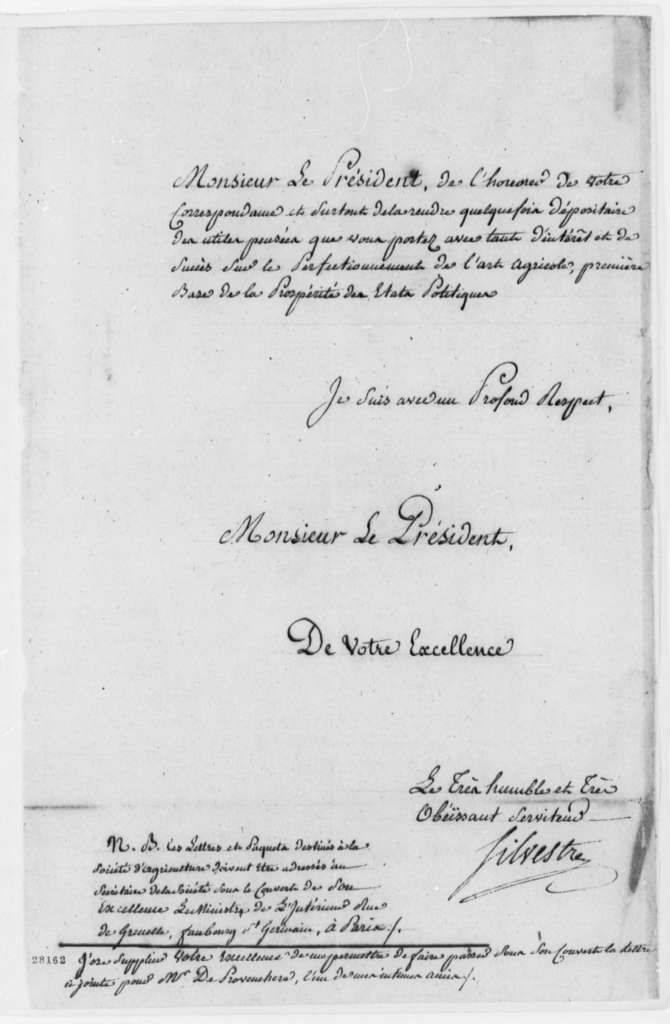 Monsieur Le Président, de l'honneur de votre
Correspondance et surtout de la rendre quelquefois dépositaire
des utiles pensées que vous portez avec tant d'intérêt et de
Succès sur le Perfectionnement de l'art agricole, première
Base de la Prospérité des Etats Politiques
Je suis avec un Profond Respect,
Monsieur Le Président,
De Votre Excellence
Le Très humble et Très
Obéïssant Serviteur
Silvestre
N. B. Les Lettres et Paquets destinés à la
Société d'agriculture doivent être adressés au
Secrétaire de la Société sous le Couvert de Son
Excellence Le Ministre de L'Intérieur Rue
de Grenelle, faubourg St Germain, à Paris /.
28162
J'ose Supplier Votre Excellence de me permettre de faire passer sous son Couvert la lettre
ci jointe pour Mr. De Provenchere, l'un de mes intimes amis /.